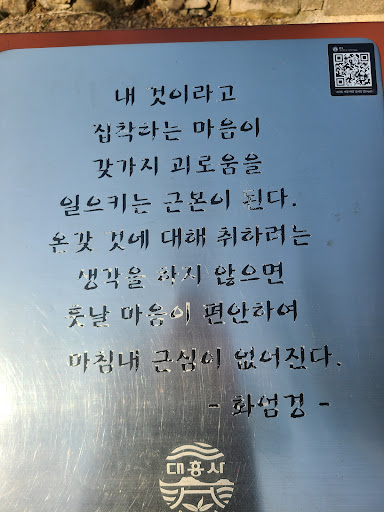 내 것이라고
집착하는 마음이
갖가지 괴로움을
일으키는 근본이 된다.
온갖 것에 대해 취하려는
생각을 하지 않으면
훗날 마음이 편안하여
마침내 근심이 없어진다.
- 화엄경 -
대흥사